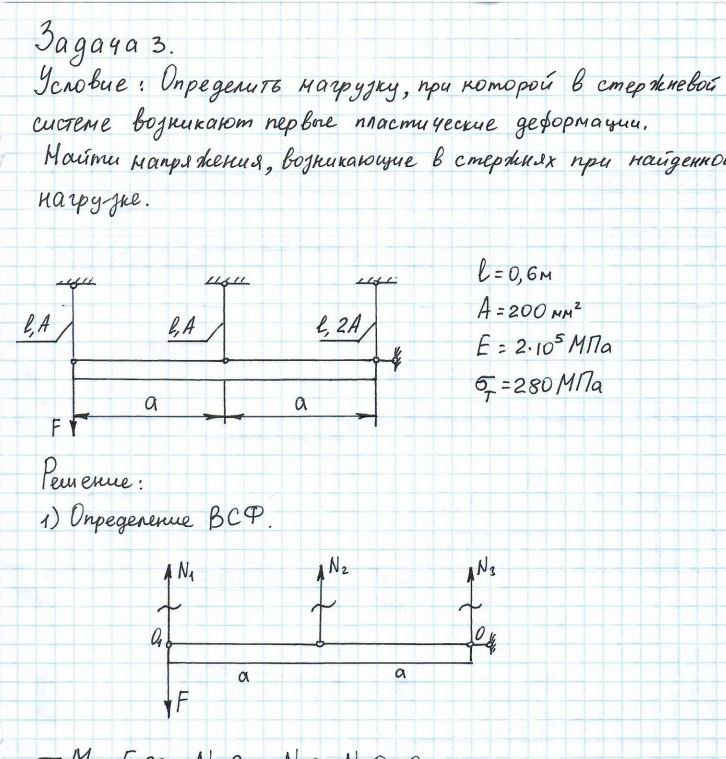 Задача 3.
Условие: Определить нагрузку, при которой в стержневой
системе возникают первые пластические деформации.
Найти напряжения, возникающие в стержнях при найденно
нагрузке.
l, A
l, A
l, 2A
l = 0,6 м
A = 200 мм²
E = 2·10⁵ МПа
σ_T = 280 МПа
a
a
F
Решение:
1) Определение ВСФ.
N₁
N₂
N₃
O₁
O
a
a
F